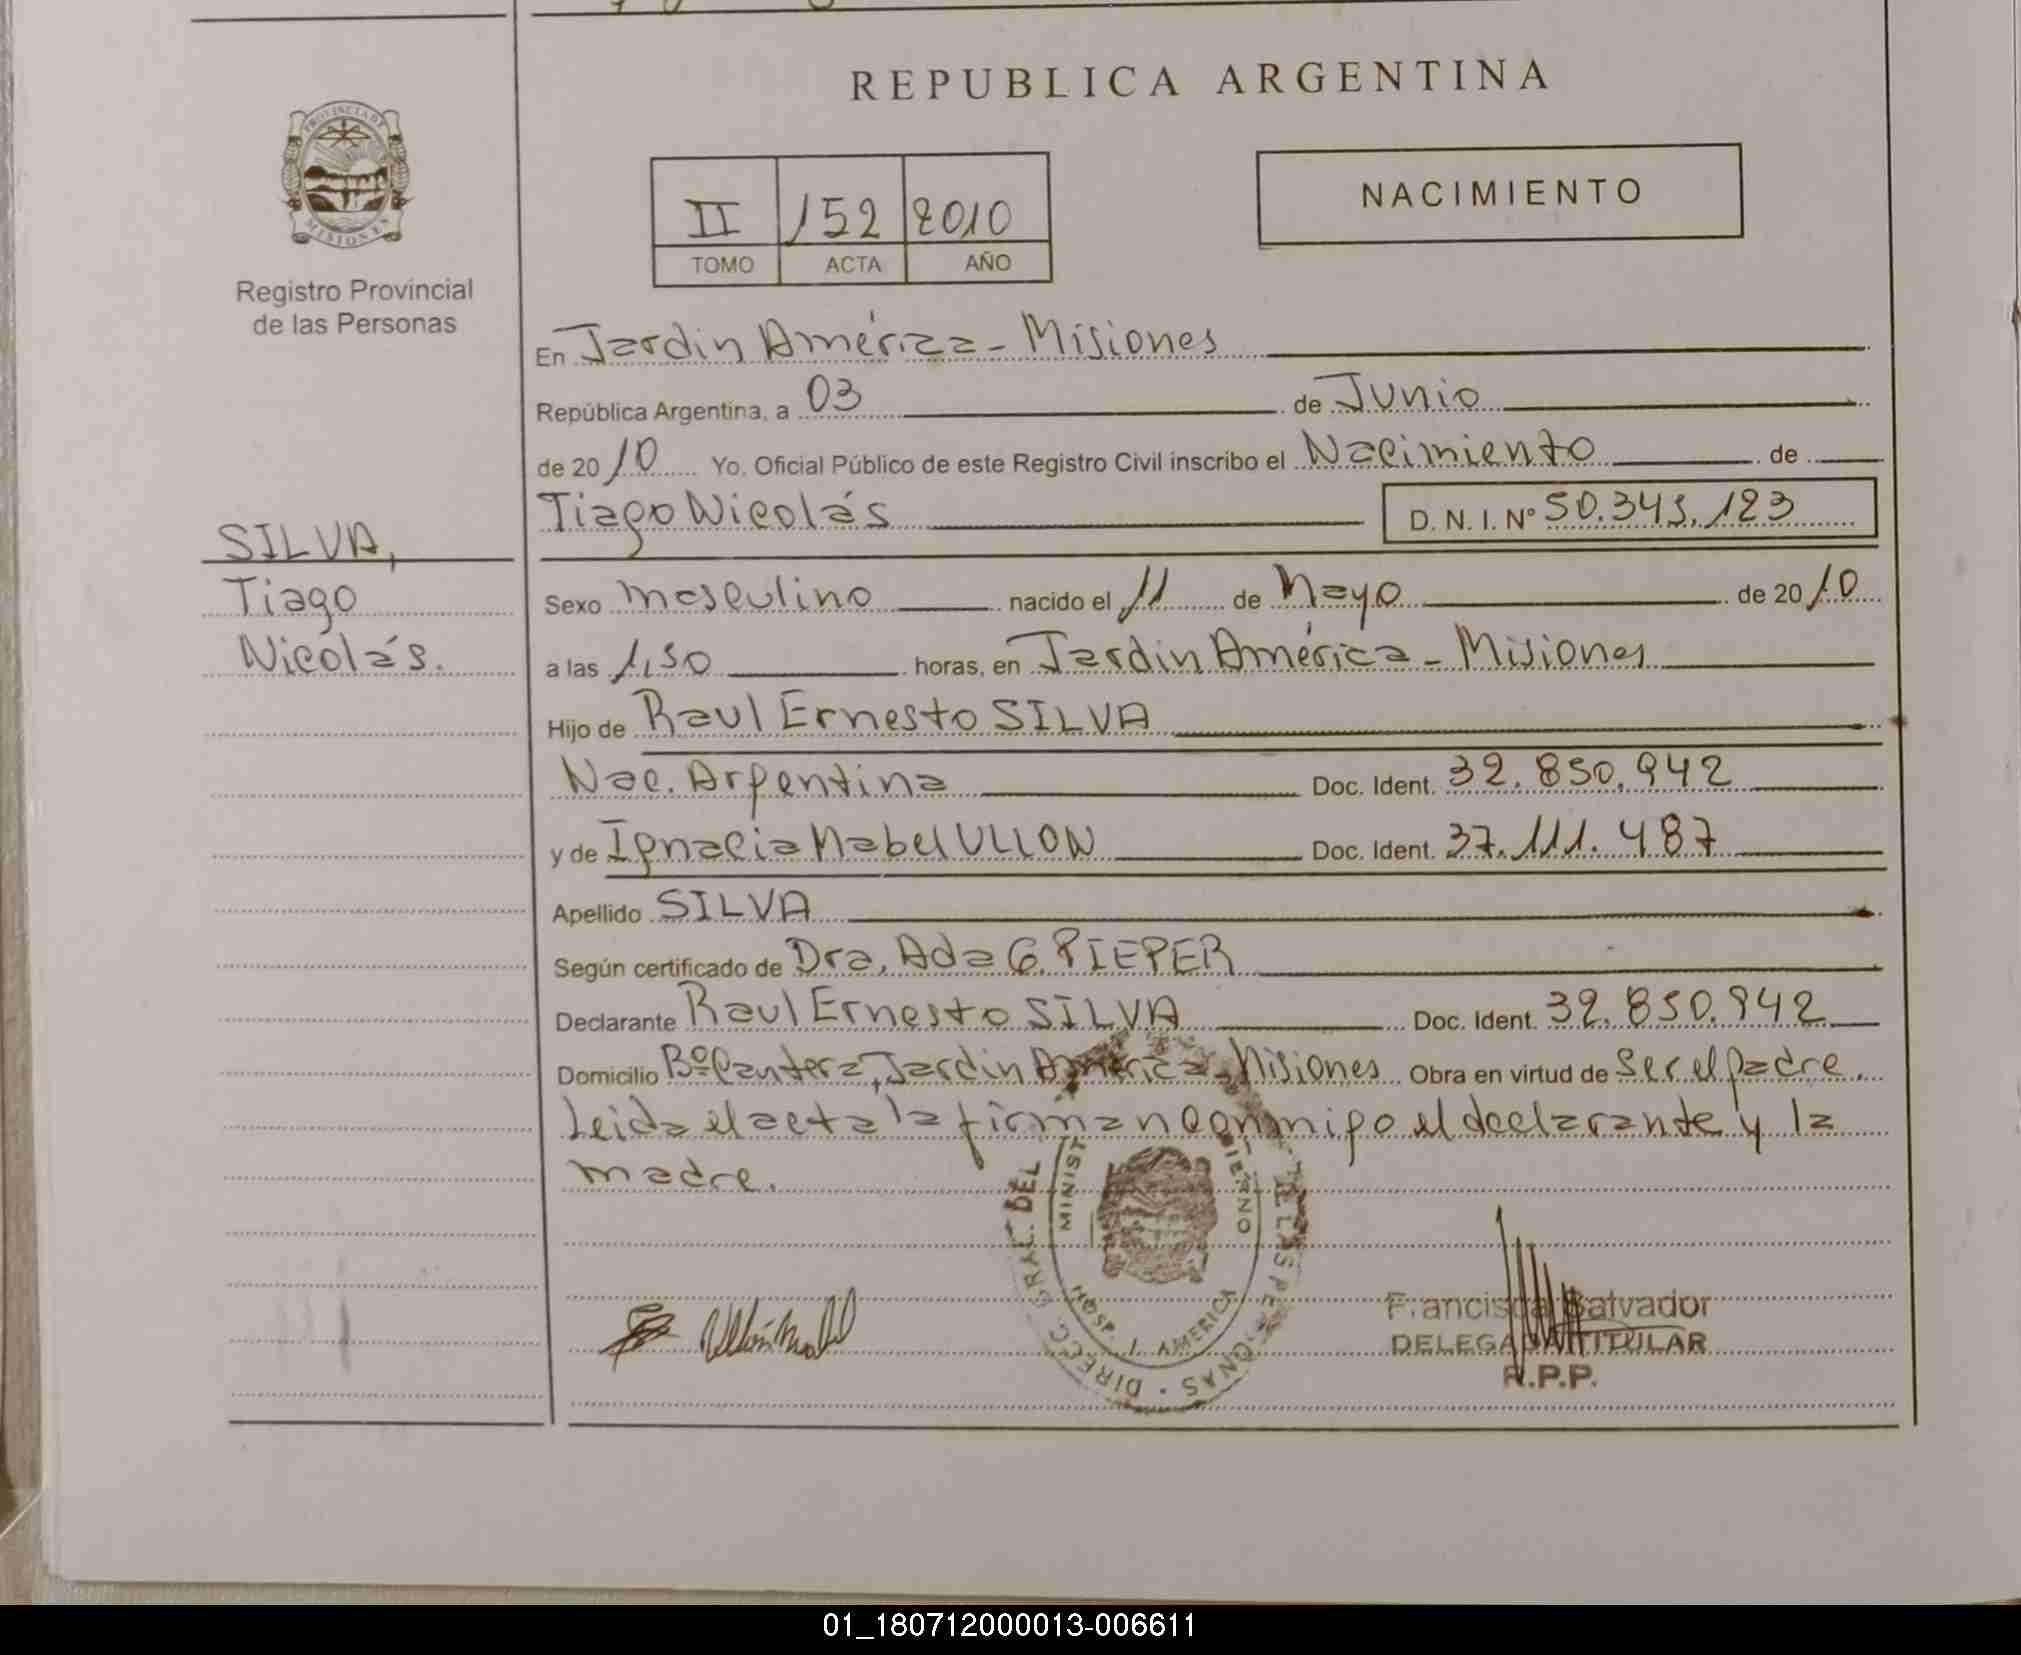 REPUBLICA ARGENTINA
PROVINCIA DE
MISIONES
Registro Provincial
de las Personas
II 152 2010
TOMO ACTA AÑO
NACIMIENTO
En Jardin América - Misiones
República Argentina, a 03 de Junio
de 2010 Yo, Oficial Público de este Registro Civil inscribo el Nacimiento de
Tiago Nicolás D.N.I. Nº 50.343.123
SILVA,
Tiago
Nicolás.
Sexo masculino nacido el 11 de Mayo de 2010
a las 1,50 horas, en Jardin América - Misiones
Hijo de Raul Ernesto SILVA
Nac. Argentina Doc. Ident. 32.850.942
y de Ignacia Mabel ULLON Doc. Ident. 37.111.487
Apellido SILVA
Según certificado de Dra. Ada G. PIEPER
Declarante Raul Ernesto SILVA Doc. Ident. 32.850.942
Domicilio Bº Cantera, Jardin América - Misiones Obra en virtud de Ser el padre.
Leida el acta la firman conmigo el declarante y la
madre.
DIRECC. GRAL. DEL
HOSP. J. AMERICA
Ullón Mabel
Francisca Salvador
DELEGADA TITULAR
R.P.P.
01_180712000013-006611